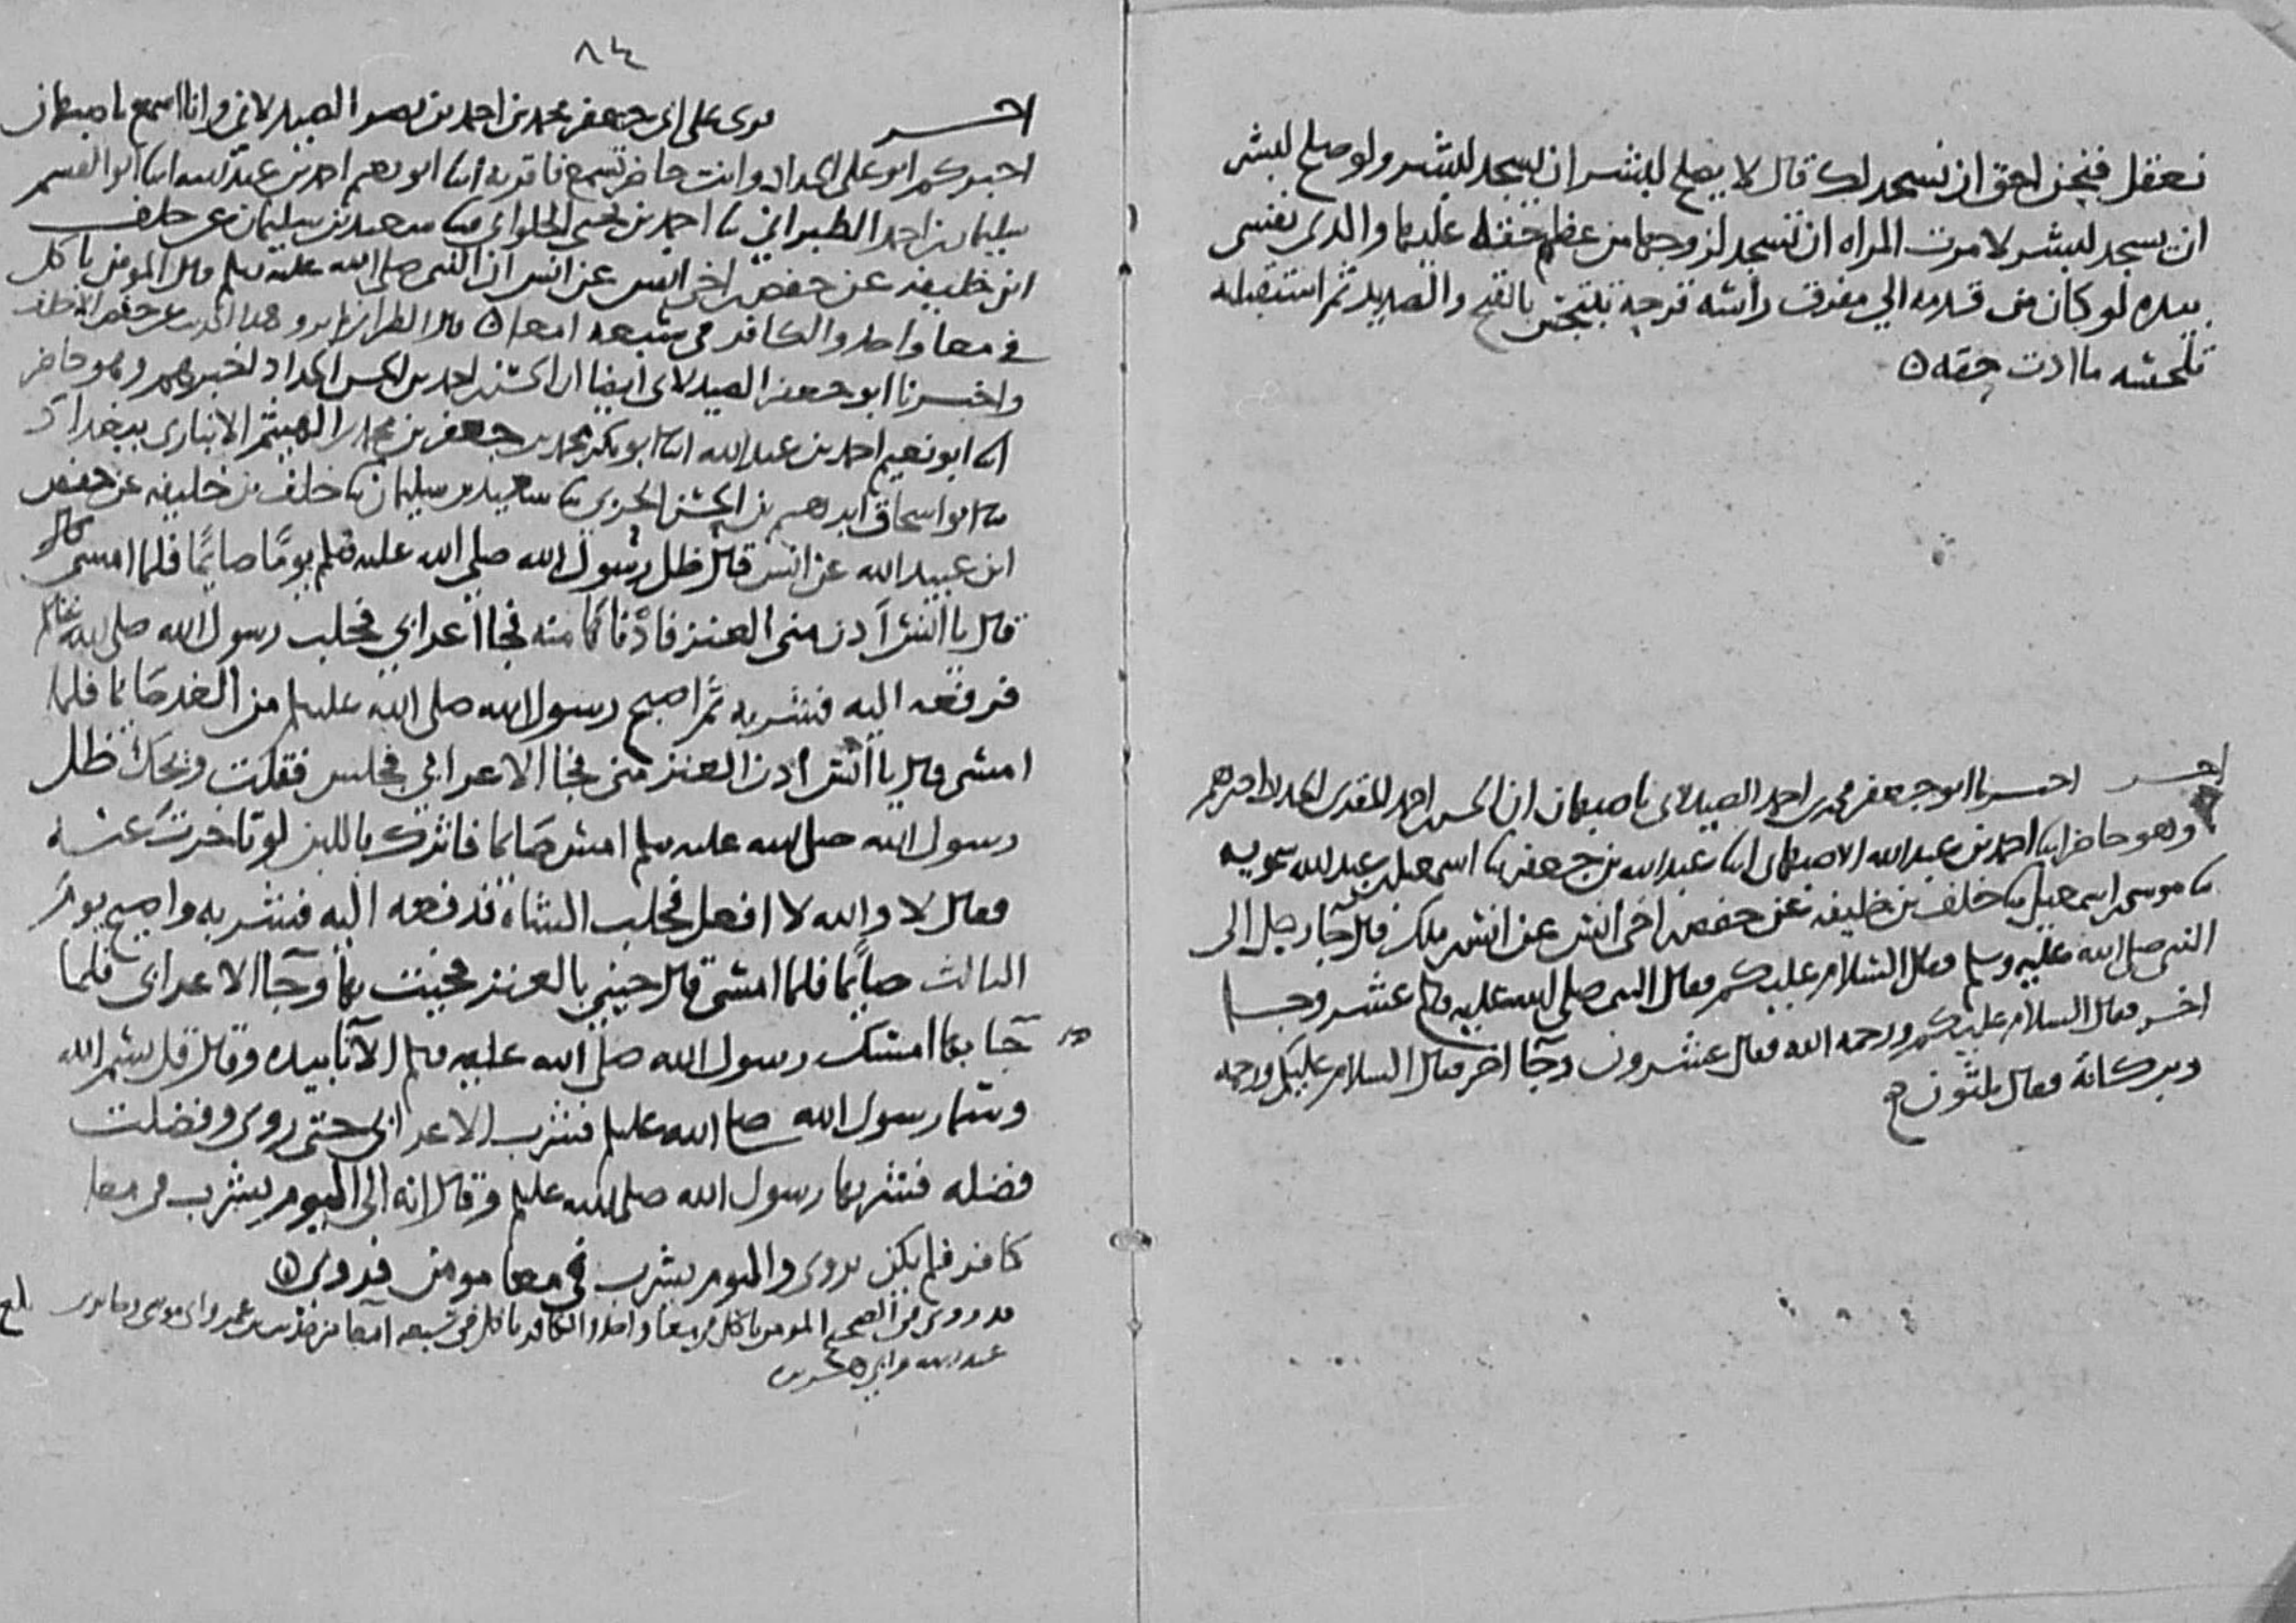 نعقل فنحن احق ان نسجد لك قال لا يصلح لبشر ان يسجد لبشر ولو صلح لبشر
ان يسجد لبشر لامرت المراه ان تسجد لزوجها من عظم حقه عليها والذي نفسي
بيده لو كان من قدمه الي مفرق راسه قرحه تتبجس بالقيح والصديد ثم استقبلته
تلحسه ما ادت حقه
اخر اخبرنا ابو جعفر محمد بن احمد الصيدلاني باصبهان ان الحسن بن احمد المقرئ الحداد اخبرهم
وهو حاضر ابنا احمد بن عبد الله الاصبهاني ابنا عبد الله بن جعفر ثنا اسمعيل بن عبد الله سمويه
ثنا موسى بن اسمعيل ثنا خلف بن خليفه عن حفص ابن اخي انس عن انس بن ملك قال جا رجل الى
النبي صلى الله عليه وسلم فقال السلام عليكم فقال النبي صلى الله عليه وسلم عشر وجا
اخر فقال السلام عليكم ورحمه الله فقال عشرون وجا اخر فقال السلام عليكم ورحمه
وبركاته فقال ثلثون
٨٤
اخر قرى على ابي جعفر محمد بن احمد بن نصر الصيدلاني وانا اسمع باصبهان
اخبركم ابو علي الحداد وانت حاضر تسمع فاقر به ابنا ابو نعيم احمد بن عبد الله ابنا ابو القسم
سليمان بن احمد الطبراني ثنا احمد بن يحيى الحلواني ثنا سعيد بن سليمان عن خلف
ابن خليفه عن حفص ابن اخي انس عن انس ان النبي صلى الله عليه وسلم قال المومن ياكل
في معا واحد والكافر في سبعه امعا قال الطبراني لم يرو هذا الحديث عن حفص الا خلف
واخبرنا ابو جعفر الصيدلاني ايضا ان الحسن بن احمد بن الحسن الحداد اخبرهم وهو حاضر
ابنا ابو نعيم احمد بن عبد الله ابنا ابو بكر محمد بن جعفر بن محمد بن الهيثم الانباري ببغداد
ثنا ابو اسحاق ابراهيم بن اسحق الحربي ثنا سعيد بن سليمان ثنا خلف بن خليفه عن حفص
ابن عبيد الله عن انس قال ظل رسول الله صلى الله عليه وسلم يوما صايما فلما امسى
قال يا انس ادن مني العنز فادنا كما منه فجا اعرابي فحلب رسول الله صلى الله عليه وسلم
فرفعه اليه فشربه ثم اصبح رسول الله صلى الله عليه وسلم من الغد صايما فلما
امسى قال يا انس ادن العنز مني فجا الاعرابي فجلس فقلت ويحك ظل
رسول الله صلى الله عليه وسلم امس صايما فاثرك باللبن لو تاخرت عنه
فقال لا والله لا افعل فحلب الشاه فدفعه اليه فشربه واصبح يوم
الثالث صايما فلما امسى قال جيني بالعنز فجيت بها وجا الاعرابي فلما
جا بها امسك رسول الله صلى الله عليه وسلم الانا بيده وقال قل بسم الله
وسما رسول الله صلى الله عليه وسلم فشرب الاعرابي حتى روى وفضلت
فضله فشربها رسول الله صلى الله عليه وسلم وقال انه الى اليوم يشرب في معا
كافر فلم يكن يروى واليوم يشرب في معا مومن فروى
قد روى في الصحيح المومن ياكل في معا واحد والكافر ياكل في سبعه امعا من حديث ابن عمر وابي موسى وجابر بن
عبد الله وابي هريره
بلغ